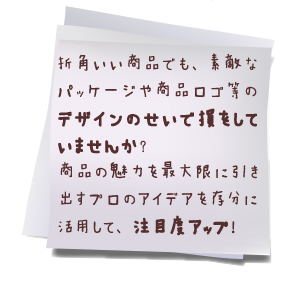 折角いい商品でも、素敵な
パッケージや商品ロゴ等の
デザインのせいで損をして
いませんか?
商品の魅力を最大限に引き
出すプロのアイデアを存分に
活用して、注目度アップ!